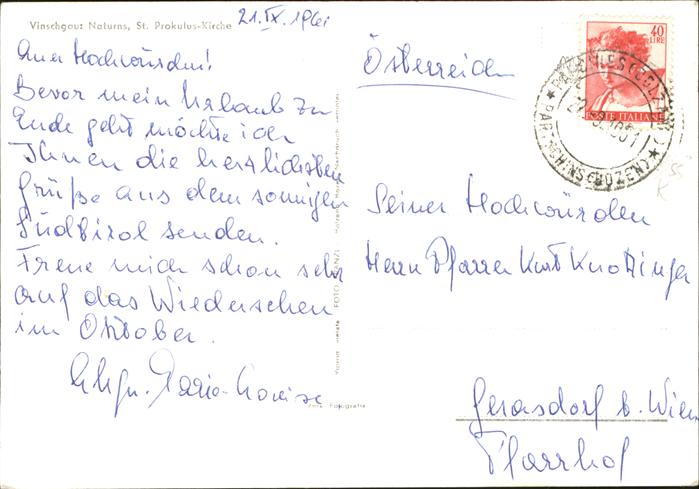 Vinschgau: Naturns, St. Prokulus-Kirche
21.IX.1961
Euer Hochwürden!
Bevor mein Urlaub zu
Ende geht möchte ich
Ihnen die herzlichsten
Grüße aus dem sonnigen
Südtirol senden.
Freue mich schon sehr
auf das Wiedersehen
im Oktober.
Maria-Louise
Österreich
40
LIRE
POSTE ITALIANE
Seiner Hochwürden
Herrn Pfarrer Kurt Knotzinger
Gerasdorf b. Wien
Pfarrhof